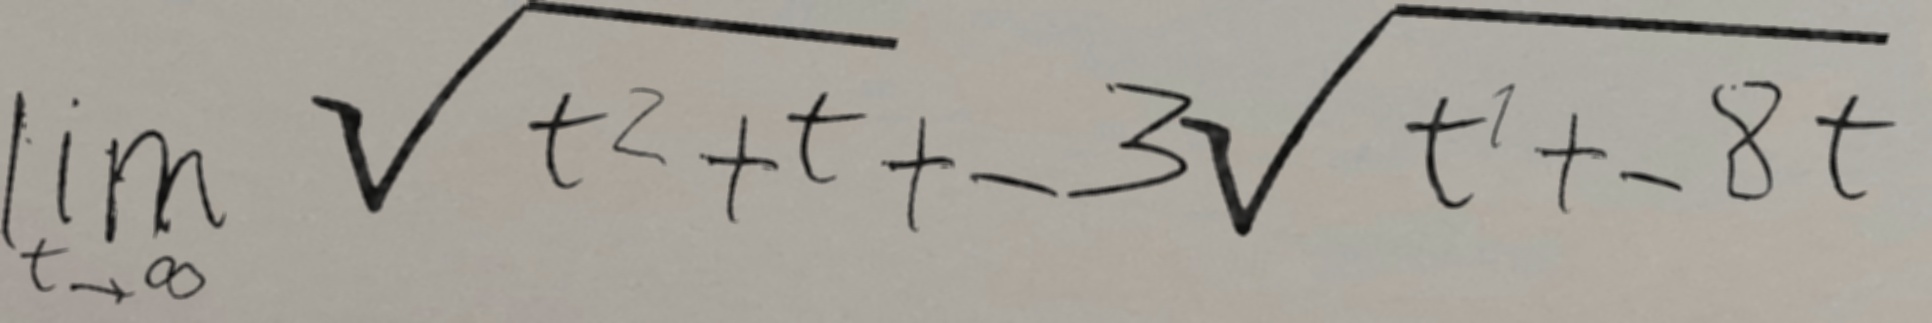 lim_{t→∞} √(t² + t) + -3√(t¹ + -8t)